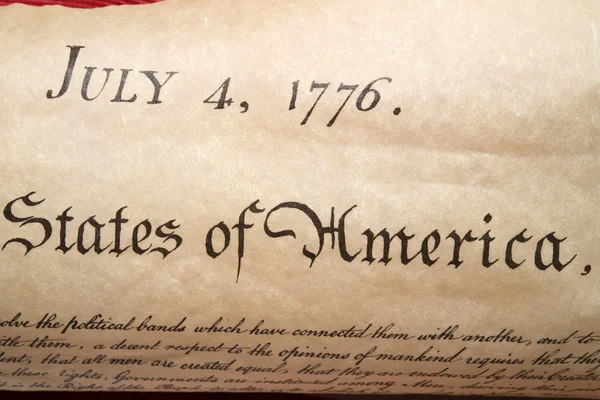 JULY 4, 1776.
States of America,
olve the political bands which have connected them with another, and to
itle them, a decent respect to the opinions of mankind requires that they
dent, that all men are created equal, that they are endowed by their Creator
these rights, Governments are instituted among Men, deriving
it is the Right of the